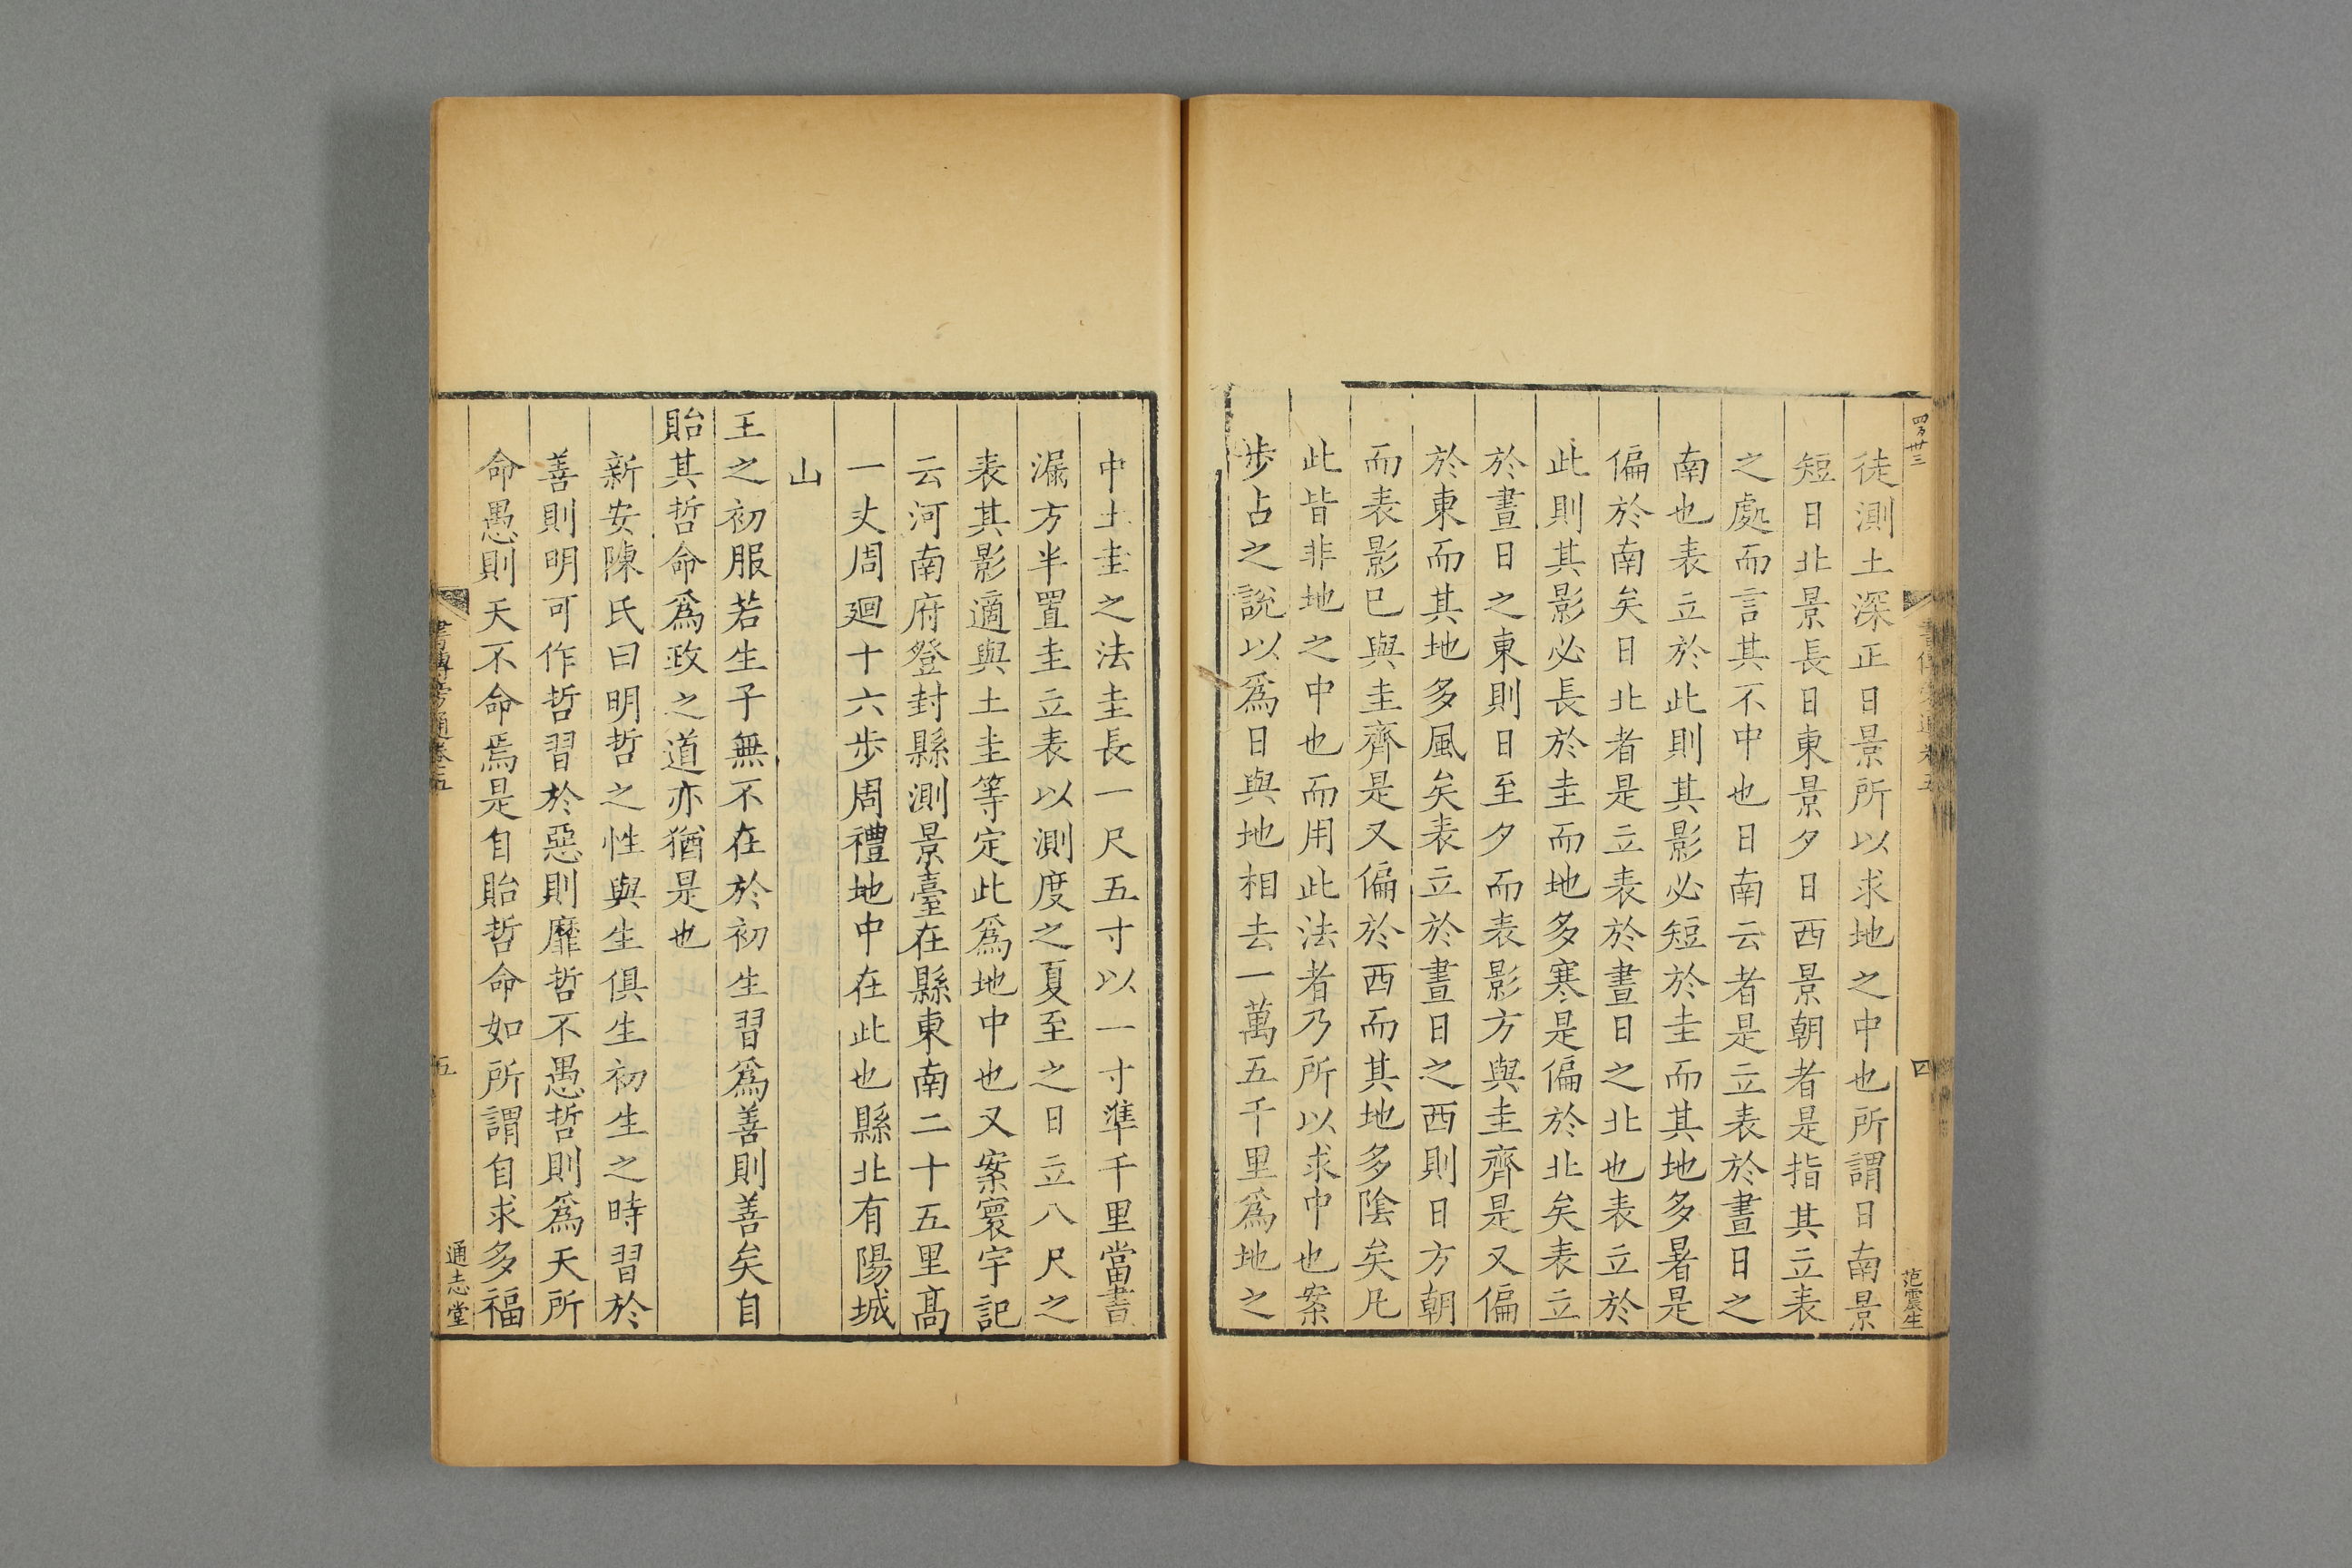 徒測土深正日景所以求地之中也所謂日南景
短日北景長日東景夕日西景朝者是指其立表
之處而言其不中也日南云者是立表於晝日之
南也表立於此則其影必短於圭而其地多暑是
偏於南矣日北者是立表於晝日之北也表立於
此則其影必長於圭而地多寒是偏於北矣表立
於晝日之東則日至夕而表影方與圭齊是又偏
於東而其地多風矣表立於晝日之西則日方朝
而表影已與圭齊是又偏於西而其地多陰矣凡
此皆非地之中也而用此法者乃所以求中也案
步占之說以為日與地相去一萬五千里為地之
四
范震生
中土圭之法圭長一尺五寸以一寸準千里當晝
漏方半置圭立表以測度之夏至之日立八尺之
表其影適與土圭等定此為地中也又案寰宇記
云河南府登封縣測景臺在縣東南二十五里髙
一丈周廻十六步周禮地中在此也縣北有陽城
山
王之初服若生子無不在於初生習為善則善矣自
貽其哲命為政之道亦猶是也
新安陳氏曰明哲之性與生俱生初生之時習於
善則明可作哲習於惡則靡哲不愚哲則為天所
命愚則天不命焉是自貽哲命如所謂自求多福
書傳旁通卷五
五
通志堂